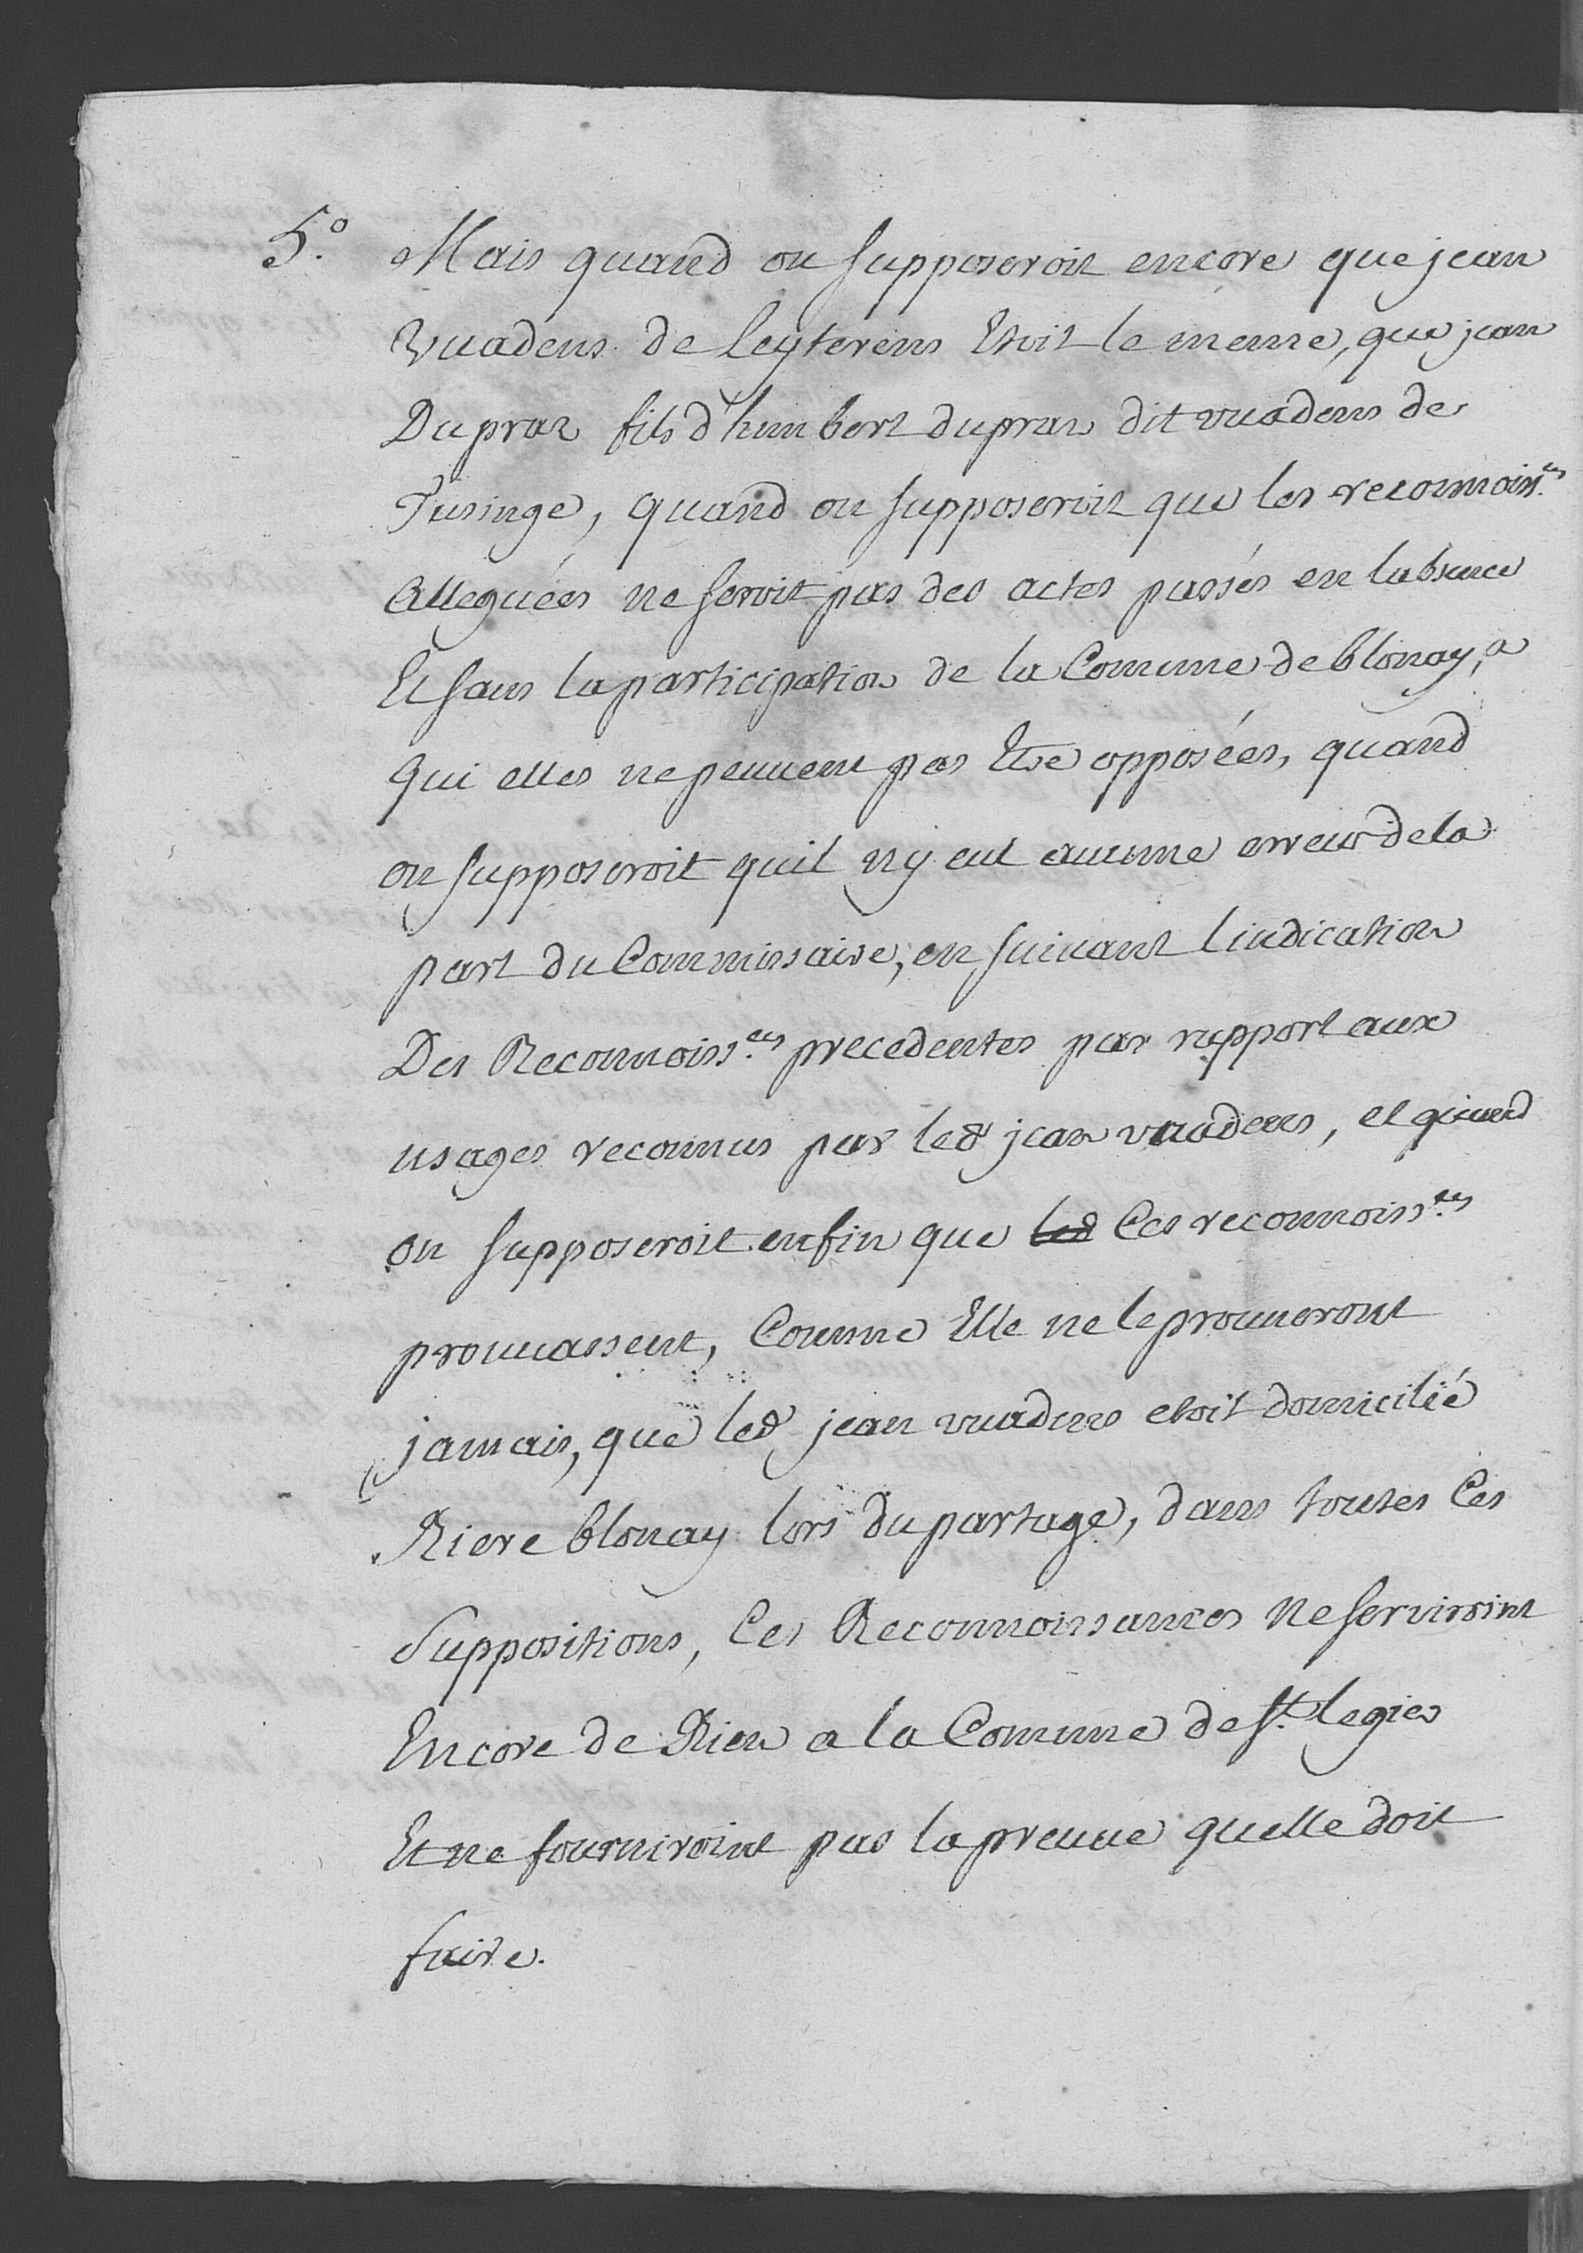 5.° Mais quand on supposeroit encore que jean
Vuadens de Leyterens Etoit le meme, que jean
Dupraz fils d'humbert dupraz dit vuadens de
Tusinge, quand on supposeroit que les reconnoiss.es
alleguées ne seroit pas des actes passés en labsence
Et sans la participation de la Comune de blonay, a
qui elles ne peuvent pas Etre opposées, quand
on supposeroit quil ny eut aucune erreur de la
part du Commissaire, en suivant lindication
Des Reconnoiss.ces precedentes par rapport aux
usages reconnus par led. jean vuadens, et quand
on supposeroit enfin que led Ces reconnoiss.ces
prouvassent, Comme Elle ne le prouveront
jamais, que led. jean vuadens etoit domicilié
Riere blonay lors du partage, dans toutes Ces
Suppositions, Ces Reconnoissances ne serviroint
Encore de Rien a la Comune de St. legier
Et ne fourniroint pas la preuve quelle doit
faire.